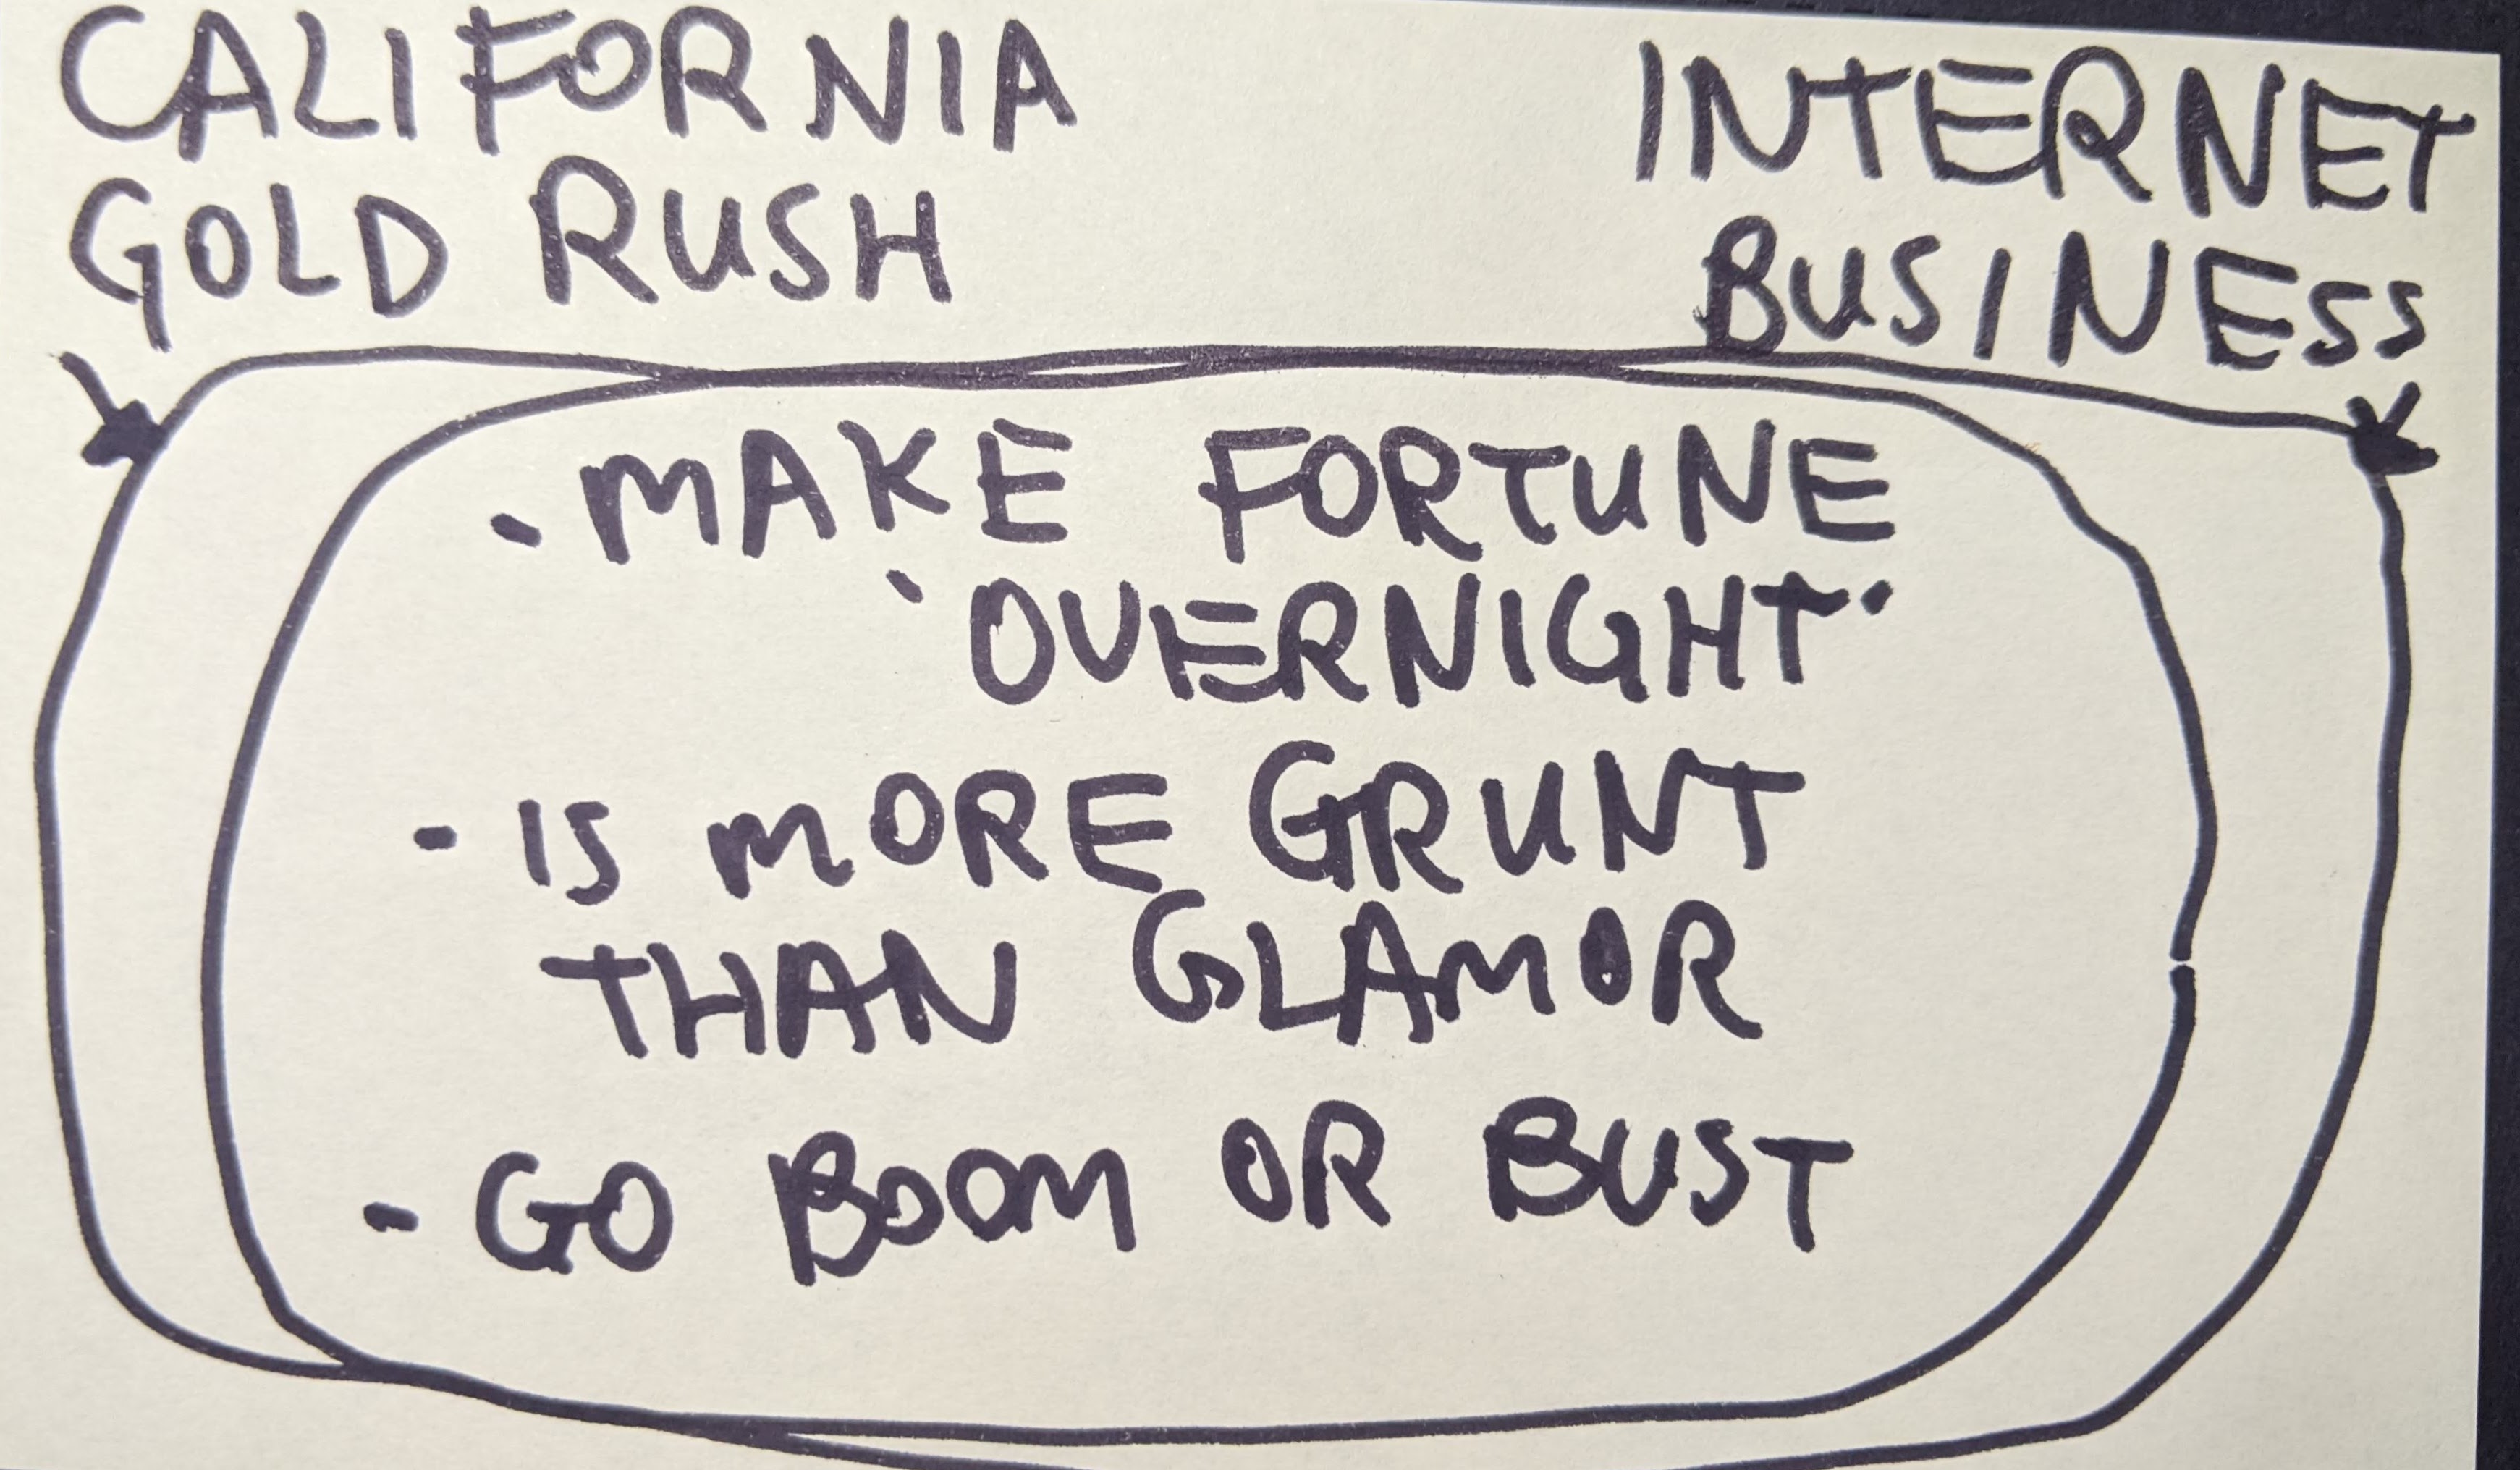 CALIFORNIA
GOLD RUSH
INTERNET
BUSINESS
- MAKE FORTUNE
'OVERNIGHT'
- IS MORE GRUNT
THAN GLAMOR
- GO BOOM OR BUST